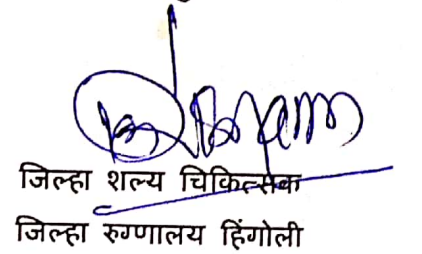 जिल्हा शल्य चिकित्सक
जिल्हा रुग्णालय हिंगोली